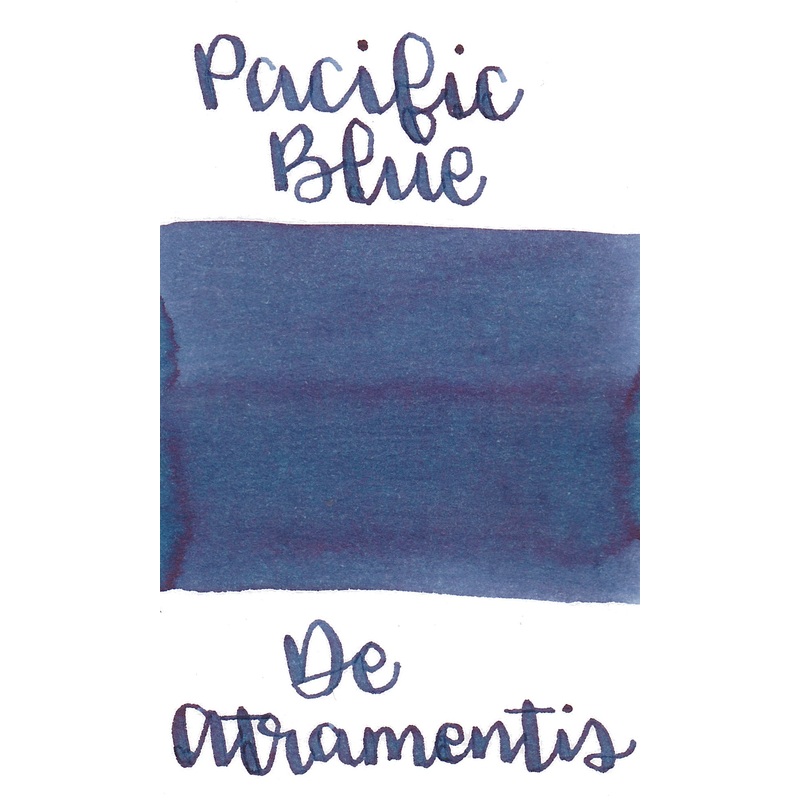 Pacific
Blue
De
Atramentis